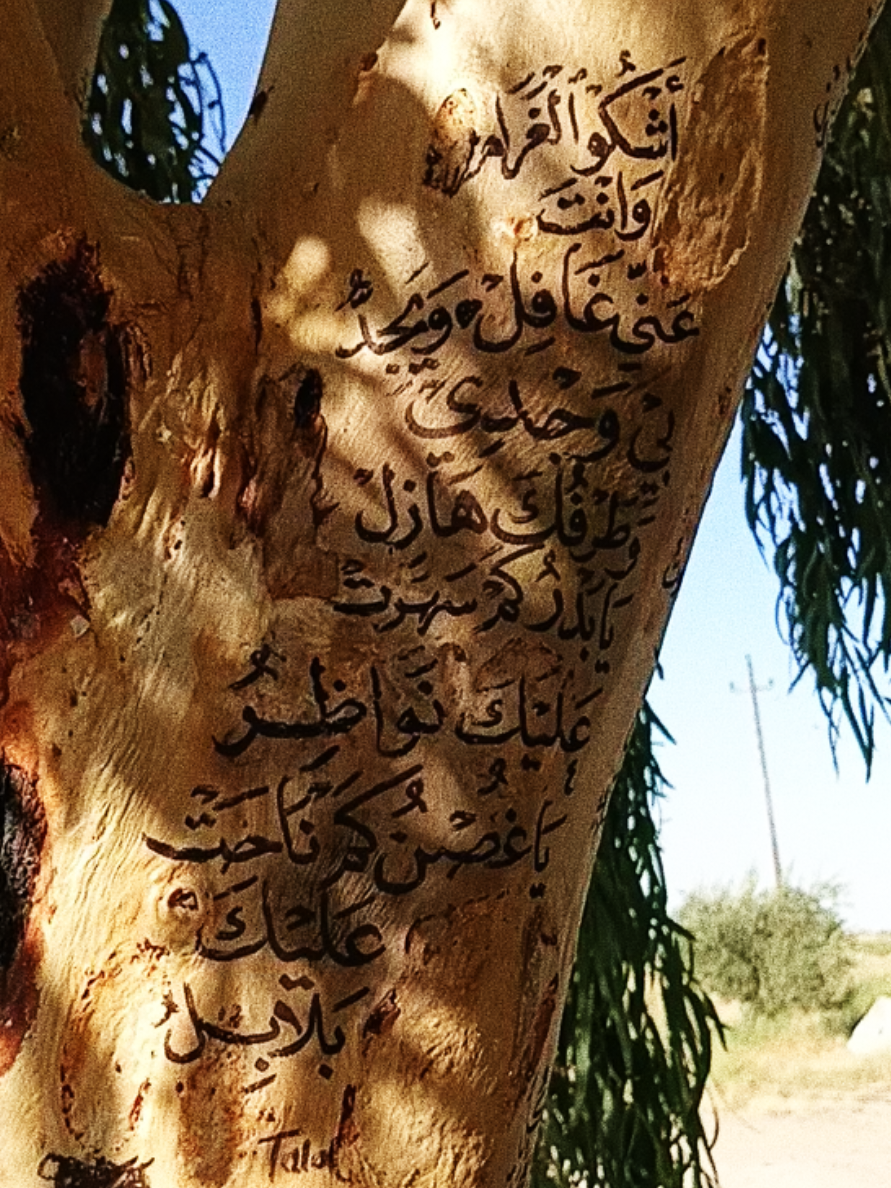 أَشْكُوا ٱلْغَرَامَ
وَانْتَ
عَنّي غَافِلْ وَيَجِدُّ
بي وَجْدِي
وَطَرْفُكَ هَازِلْ
يَا بَدْرُ كَمْ سَهِرَتْ
عَلَيْكَ نَوَاظِرُ
يَا غُصْنُ كَمْ نَاحَتْ
عَلَيْكَ
بَلَابِلُ
Talal